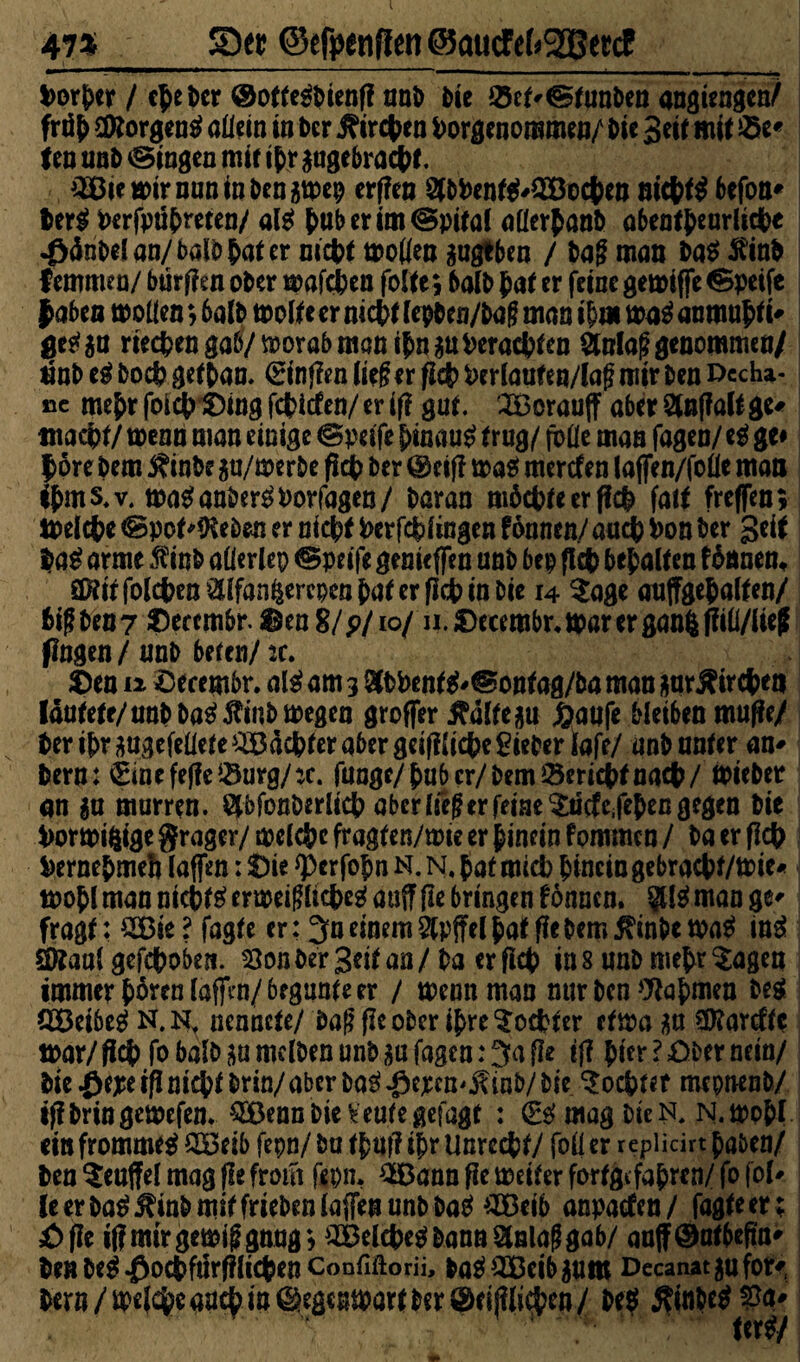 472 Der Gespensten Gauckel-Werck
vorher / ehe der Gottesdienst und die Bet-Stunden angiengen/
früh Morgens allein in der Kirchen vorgenommen/ die Zeit mit Be-
ten und Singen mit ihr zugebracht.
Wie wir nun in den zwey ersten Advents-Wochen nichts beson-
ders verspühreten/ als hub er im Spital allerhand abentheurliche
Händel an/ bald hat er nicht wollen zugeben / daß man das Kind
kemmen/ bürsten oder waschen solte; bald hat er seine gewisse Speise
haben wollen; bald wolte er nicht leyden/daß man ihm was anmuhti-
ges zu riechen gab/ worab man ihn zu verachten Anlaß genommen/
und es doch gethan. Einsten ließ er sich verlauten/laß mir den Decha-
ne mehr solch Ding schicken/ er ist gut. Worauff aber Anstalt ge-
macht/ wenn man einige Speise hinaus trug/ solle man sagen/ es ge-
höre dem Kinde zu/werde sich der Geist was mercken lassen/solle man
ihm S. v. was anders vorsagen/ daran möchte er sich satt fressen;
welche Spot-Reden er nicht verschlingen können/ auch von der Zeit
das arme Kind allerley Speise geniessen und bey sich behalten können.
Mit solchen Alfantzereyen hat er sich in die 14 Tage auffgehalten/
biß den 7 Decembr. Den 8/ 9/ 10/ 11. Decembr. war er gantz still/ließ
singen / und beten/ ꝛc.
Den 12 Decembr. als am 3 Advents-Sontag/da man zur Kirchen
läutete/ und das Kind wegen grosser Kälte zu Hause bleiben muste/
der ihr zugesellete Wächter aber geistliche Lieder lase/ und unter an-
dern: Eine feste Burg/ ꝛc. sunge/ hub er/ dem Bericht nach / wieder
an zu murren. Absonderlich aber ließ er seine Tücke sehen gegen die
vorwitzige Frager/ welche fragten/wie er hinein kommen / da er sich
vernehmen lassen: Die Persohn N. N. hat mich hinein gebracht/wie-
wohl man nichts erweißliches auff sie bringen können. Als man ge-
fragt: Wie ? sagte er: In einem Apffel hat sie dem Kinde was ins
Maul geschoben. Von der Zeit an / da er sich in 8 und mehr Tagen
immer hören lassen/ begunte er / wenn man nur den Nahmen des
Weibes N. N. nennete/ daß sie oder ihre Tochter etwa zu Marckte
war/ sich so bald zu melden und zu sagen: Ja sie ist hier ? Oder nein/
die Hexe ist nicht drin/ aber das Hexen-Kind/ die Tochter meynend/
ist drin gewesen. Wenn die Leute gesagt : Es mag die N. N. wohl
ein frommes Weib seyn/ du thust ihr Unrecht/ soll er replicirt haben/
den Teuffel mag sie from seyn. Wann sie weiter fortgefahren/ so sol-
le er das Kind mit frieden lassen und das Weib anpacken / sagte er:
O sie ist mir gewiß gnug; Welches dann Anlaß gab/ auff Gutbefin-
den des Hochfürstlichen Consistorii, das Weib zum Decanat zu for-
dern / welche auch in Gegenwart der Geistlichen / des Kindes Va-
ters/